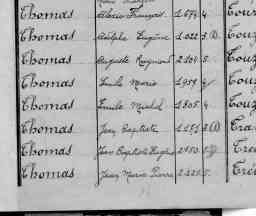 Thomas Alexis François 1.574. 4 Tour
Thomas Adolphe Eugène 1.022. 3.(2) Tou
Thomas Auguste Raymond 2.104. 5 Touz
Thomas Emile Marie 1.959. 4 Touz
Thomas Emile Michel 1.805. 4 Touz
Thomas Jean Baptiste 1.151. 3.(2) Tra
Thomas Jean Baptiste Eugène 2.150. 5 Tré
Thomas Jean Marie Pierre 2.221. 5 Tré